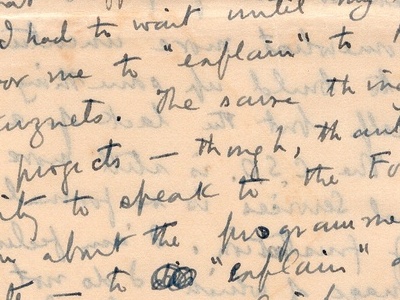 I had to wait until
or me to "explain" to
uznets. The same thing
projects — though, th
ity to speak to the Fo
about the programme
— to "explain"